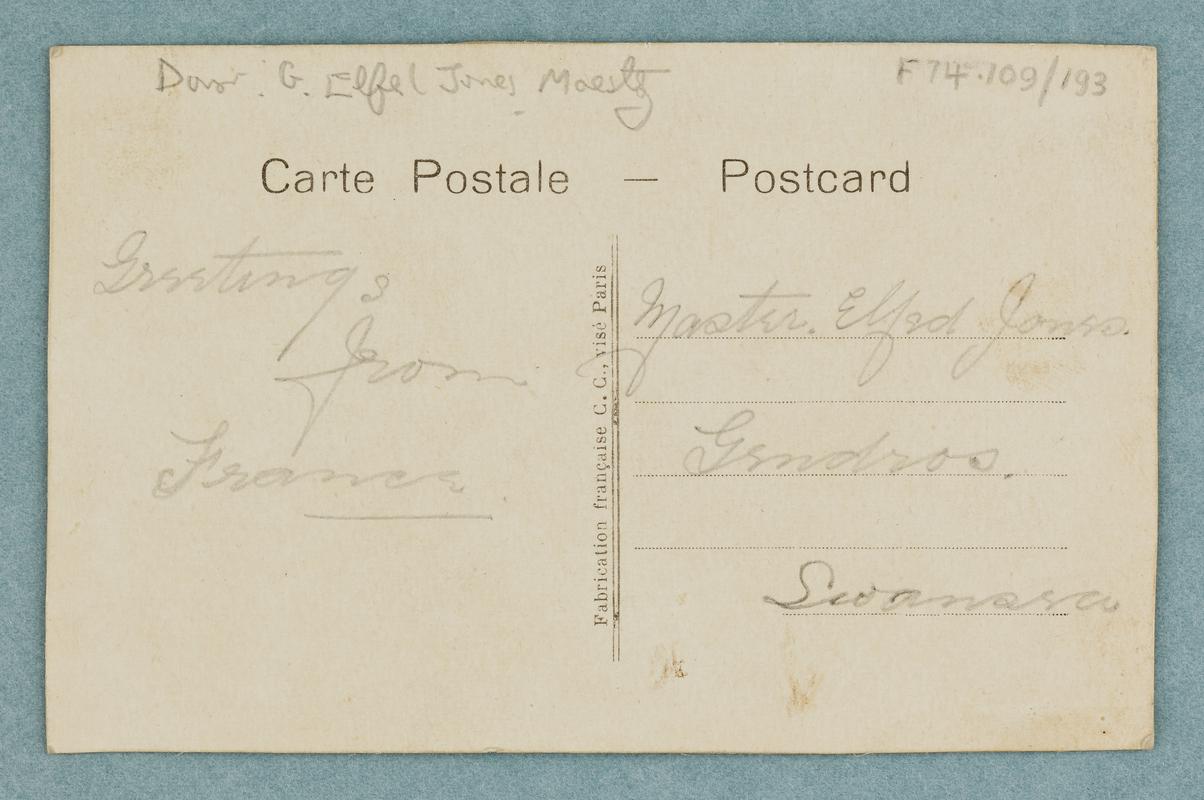 G. Elfel Jones Maesteg
F74.109/193
Carte Postale — Postcard
Greetings
from
France
Fabrication française C. C., visé Paris
Master. Elfed Jones.
Gendros.
Swansea